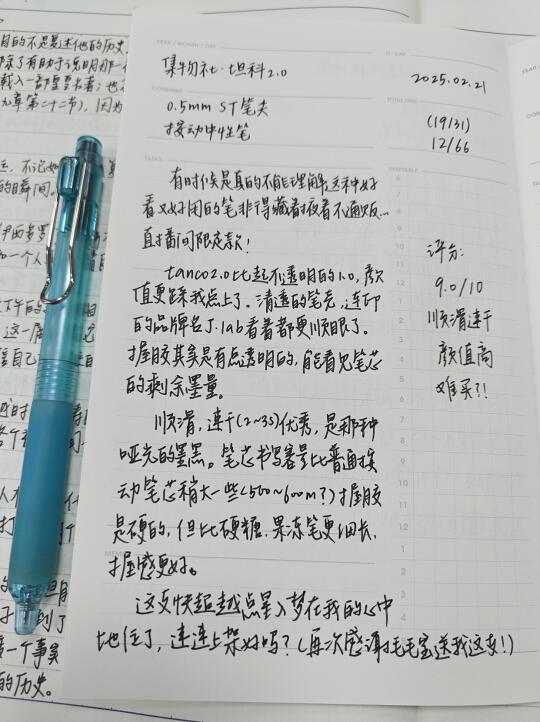 集物社·坦科2.0
2025.02.21
0.5mm ST笔尖
按动中性笔
(19/31)
12/66
有时候是真的不能理解,这种好
看又好用的笔非得藏着掖着不通贩...
直播间限定款!
tanco2.0比起不透明的1.0,颜
值更踩我点上了。清透的笔壳,连印
的品牌名J.lab看着都更顺眼了。
握胶其实是有点透明的,能看见笔芯
的剩余墨量。
评分:
9.0/10
顺滑速干
颜值高
难买?!
顺滑,速干(2~3s)优秀,是那种
哑光的墨黑。笔芯书写容量比普通按
动笔芯稍大一些(500~600m?)握胶
是硬的,但比硬糖、果冻笔更细长,
握感更好。
这支快超越点星入梦在我的心中
地位了,速速上架好吗?(再次感谢毛毛宝送我这支!)
目的不是复述他的历史
载入一部
九章第二十二节),因为
的瞬间。
一个事实
的历史。